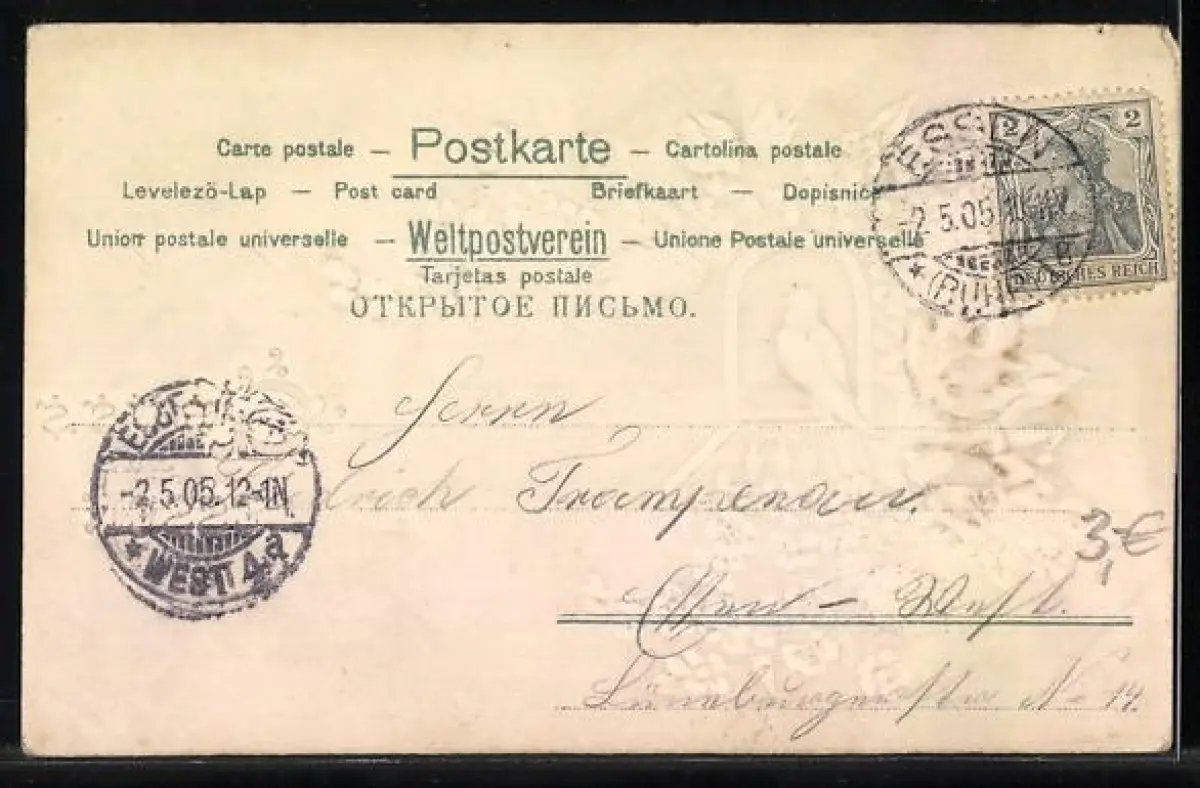 Carte postale — Postkarte — Cartolina postale
Levelezö-Lap — Post card Briefkaart — Dopisnice
Union postale universelle — Weltpostverein — Unione Postale universelle
Tarjetas postale
ОТКРЫТОЕ ПИСЬМО.
2 2
DEUTSCHES REICH
ESSEN
-2.5.05.
* (RUHR
Herrn
-2.5.05.12-1N
* WEST 4.a
Trampenau.
Essen - West.
Lüneburgerstr No 14.
3,€